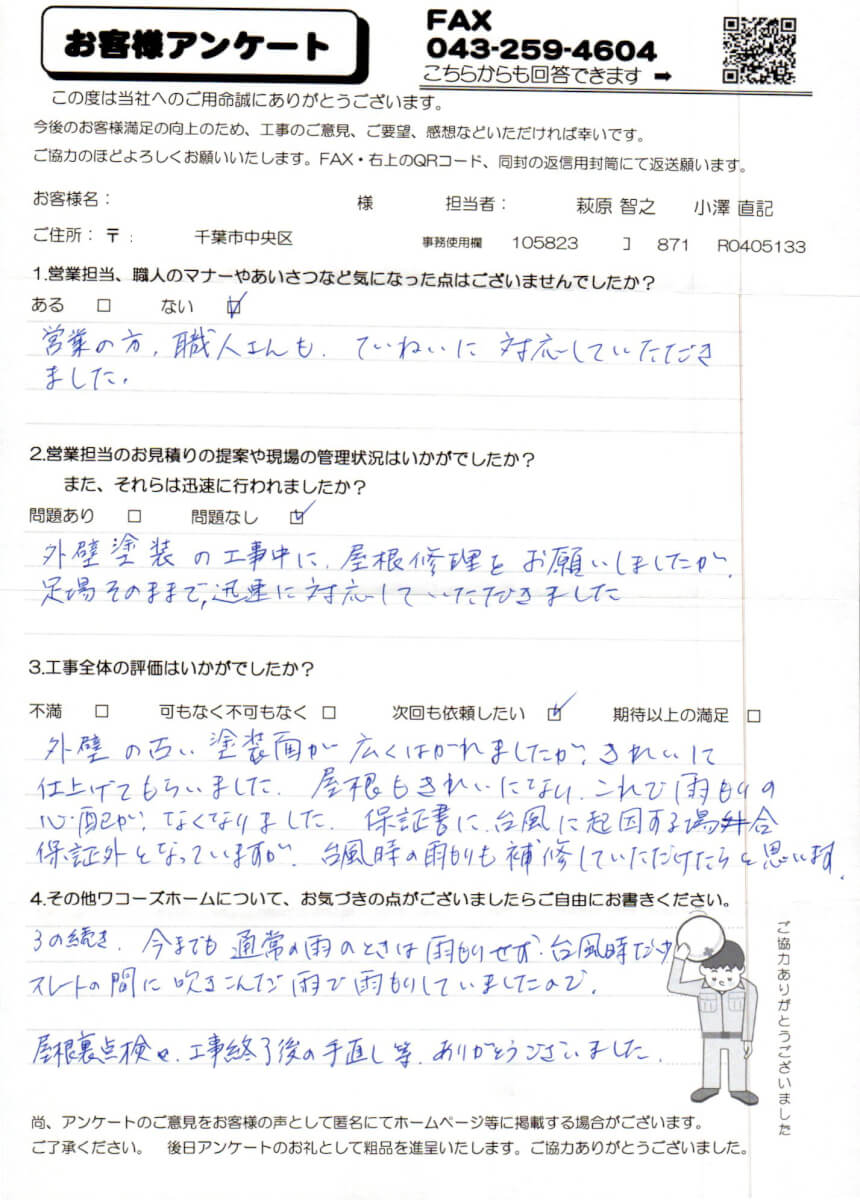 お客様アンケート
FAX
043-259-4604
こちらからも回答できます ➡
この度は当社へのご用命誠にありがとうございます。
今後のお客様満足の向上のため、工事のご意見、ご要望、感想などいただければ幸いです。
ご協力のほどよろしくお願いいたします。FAX・右上のQRコード、同封の返信用封筒にて返送願います。
お客様名： 様 担当者： 萩原 智之 小澤 直記
ご住所：〒： 千葉市中央区 事務使用欄 105823 コ 871 R0405133
1.営業担当、職人のマナーやあいさつなど気になった点はございませんでしたか？
ある □ ない ☑
営業の方、職人さんも、ていねいに対応していただき
ました。
2.営業担当のお見積りの提案や現場の管理状況はいかがでしたか？
また、それらは迅速に行われましたか？
問題あり □ 問題なし ☑
外壁塗装の工事中に、屋根修理をお願いしましたが、
足場そのままで、迅速に対応していただきました
3.工事全体の評価はいかがでしたか？
不満 □ 可もなく不可もなく □ 次回も依頼したい ☑ 期待以上の満足 □
外壁の古い塗装面が広くはがれましたが、きれいに
仕上げてもらいました。屋根もきれいになり、これで雨もりの
心配が、なくなりました。保証書に、台風に起因する場合
保証外となっていますが、台風時の雨もりも補修していただけたらと思います。
4.その他ワコーズホームについて、お気づきの点がございましたらご自由にお書きください。
3の続き、今までも通常の雨のときは雨もりせず、台風時だけ
スレートの間に吹きこんだ雨で雨もりしていましたので、
屋根裏点検や、工事終了後の手直し等、ありがとうございました。
ご協力ありがとうございました
尚、アンケートのご意見をお客様の声として匿名にてホームページ等に掲載する場合がございます。
ご了承ください。 後日アンケートのお礼として粗品を進呈いたします。ご協力ありがとうございました。